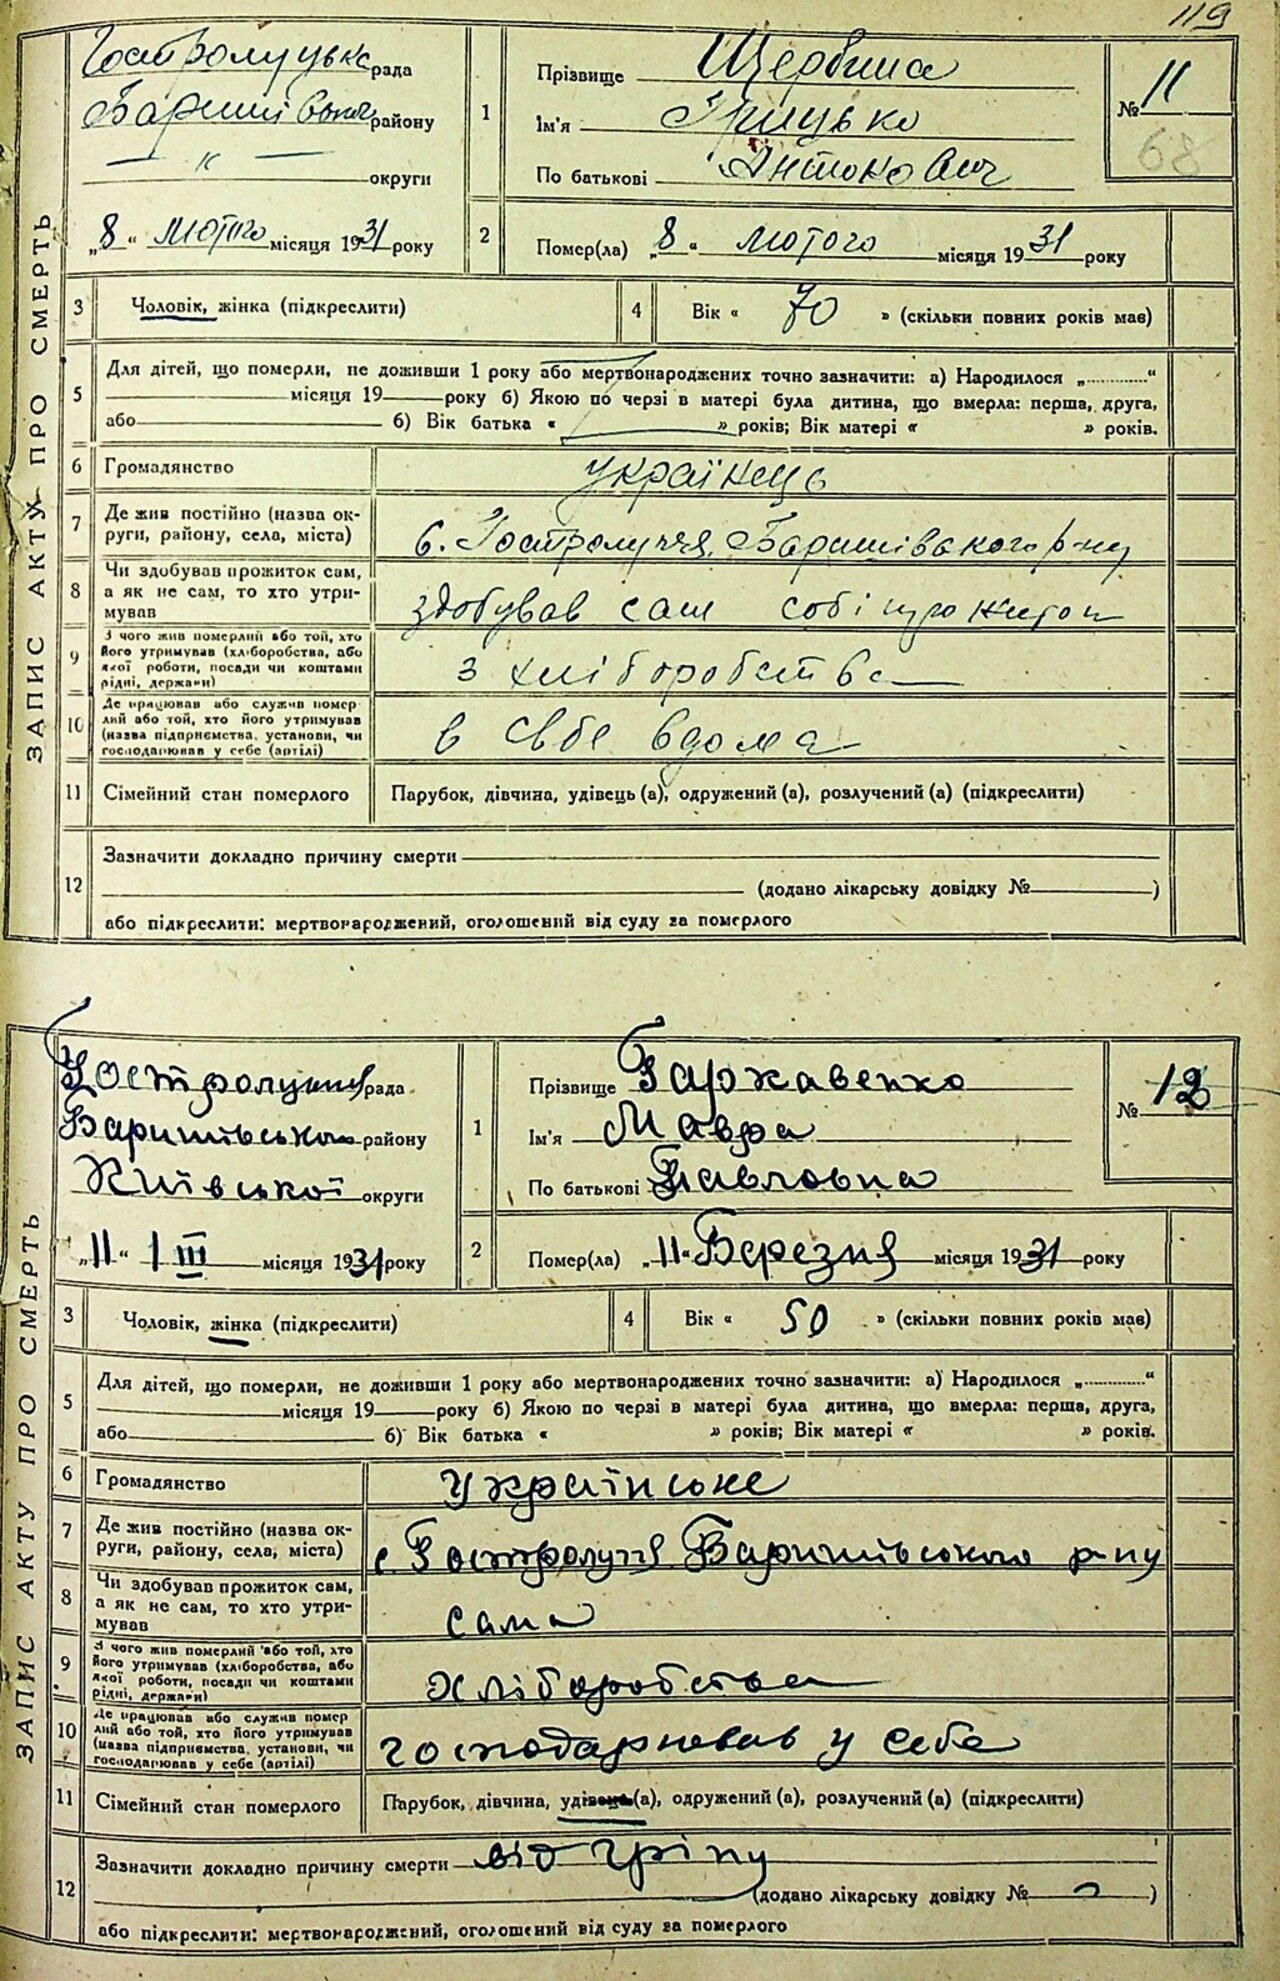 119
ЗАПИС АКТУ ПРО СМЕРТЬ
Гостролуцька рада
Баришівськ району
— " — округи
„8“ лютого місяця 1931 року
1
Прізвище Щербина
Ім'я Грицько
По батькові Антонович
№ 11
68
2
Помер(ла) „8“ лютого місяця 1931 року
3 Чоловік, жінка (підкреслити)
4 Вік « 70 » (скільки повних років має)
5 Для дітей, що померли, не доживши 1 року або мертвонароджених точно зазначити: а) Народилося „............“
місяця 19 року б) Якою по черзі в матері була дитина, що вмерла: перша, друга,
або б) Вік батька « » років; Вік матері « » років.
6 Громадянство українець
7 Де жив постійно (назва ок-
руги, району, села, міста) с. Гостролуччя, Баришівського р-ну
8 Чи здобував прожиток сам,
а як не сам, то хто утри-
мував здобував сам собі прожиток
9 З чого жив померлий або той, хто
його утримував (хліборобства, або
якої роботи, посади чи коштами
рідні, держави) з хліборобства
10 Де працював або служив помер
лий або той, хто його утримував
(назва підприємства, установи, чи
господарював у себе (артілі) в себе вдома
11 Сімейний стан померлого Парубок, дівчина, удівець (а), одружений (а), розлучений (а) (підкреслити)
12 Зазначити докладно причину смерти
(додано лікарську довідку № )
або підкреслити: мертвонароджений, оголошений від суду за померлого
ЗАПИС АКТУ ПРО СМЕРТЬ
рада
Баришівського району
Київської округи
„11“ III місяця 1931 року
1
Прізвище Гаркавенко
Ім'я Мавра
По батькові Павловна
№ 12
2
Помер(ла) „11“ Березня місяця 1931 року
3 Чоловік, жінка (підкреслити)
4 Вік « 50 » (скільки повних років має)
5 Для дітей, що померли, не доживши 1 року або мертвонароджених точно зазначити: а) Народилося „............“
місяця 19 року б) Якою по черзі в матері була дитина, що вмерла: перша, друга,
або б) Вік батька « » років; Вік матері « » років.
6 Громадянство Українське
7 Де жив постійно (назва ок-
руги, району, села, міста) с. Гостролуччя Баришівського р-ну
8 Чи здобував прожиток сам,
а як не сам, то хто утри-
мував сама
9 З чого жив померлий або той, хто
його утримував (хліборобства, або
якої роботи, посади чи коштами
рідні, держави) хліборобства
10 Де працював або служив помер
лий або той, хто його утримував
(назва підприємства, установи, чи
господарював у себе (артілі) господарював у себе
11 Сімейний стан померлого Парубок, дівчина, удівець (а), одружений (а), розлучений (а) (підкреслити)
12 Зазначити докладно причину смерти від гріпу
(додано лікарську довідку № )
або підкреслити: мертвонароджений, оголошений від суду за померлого